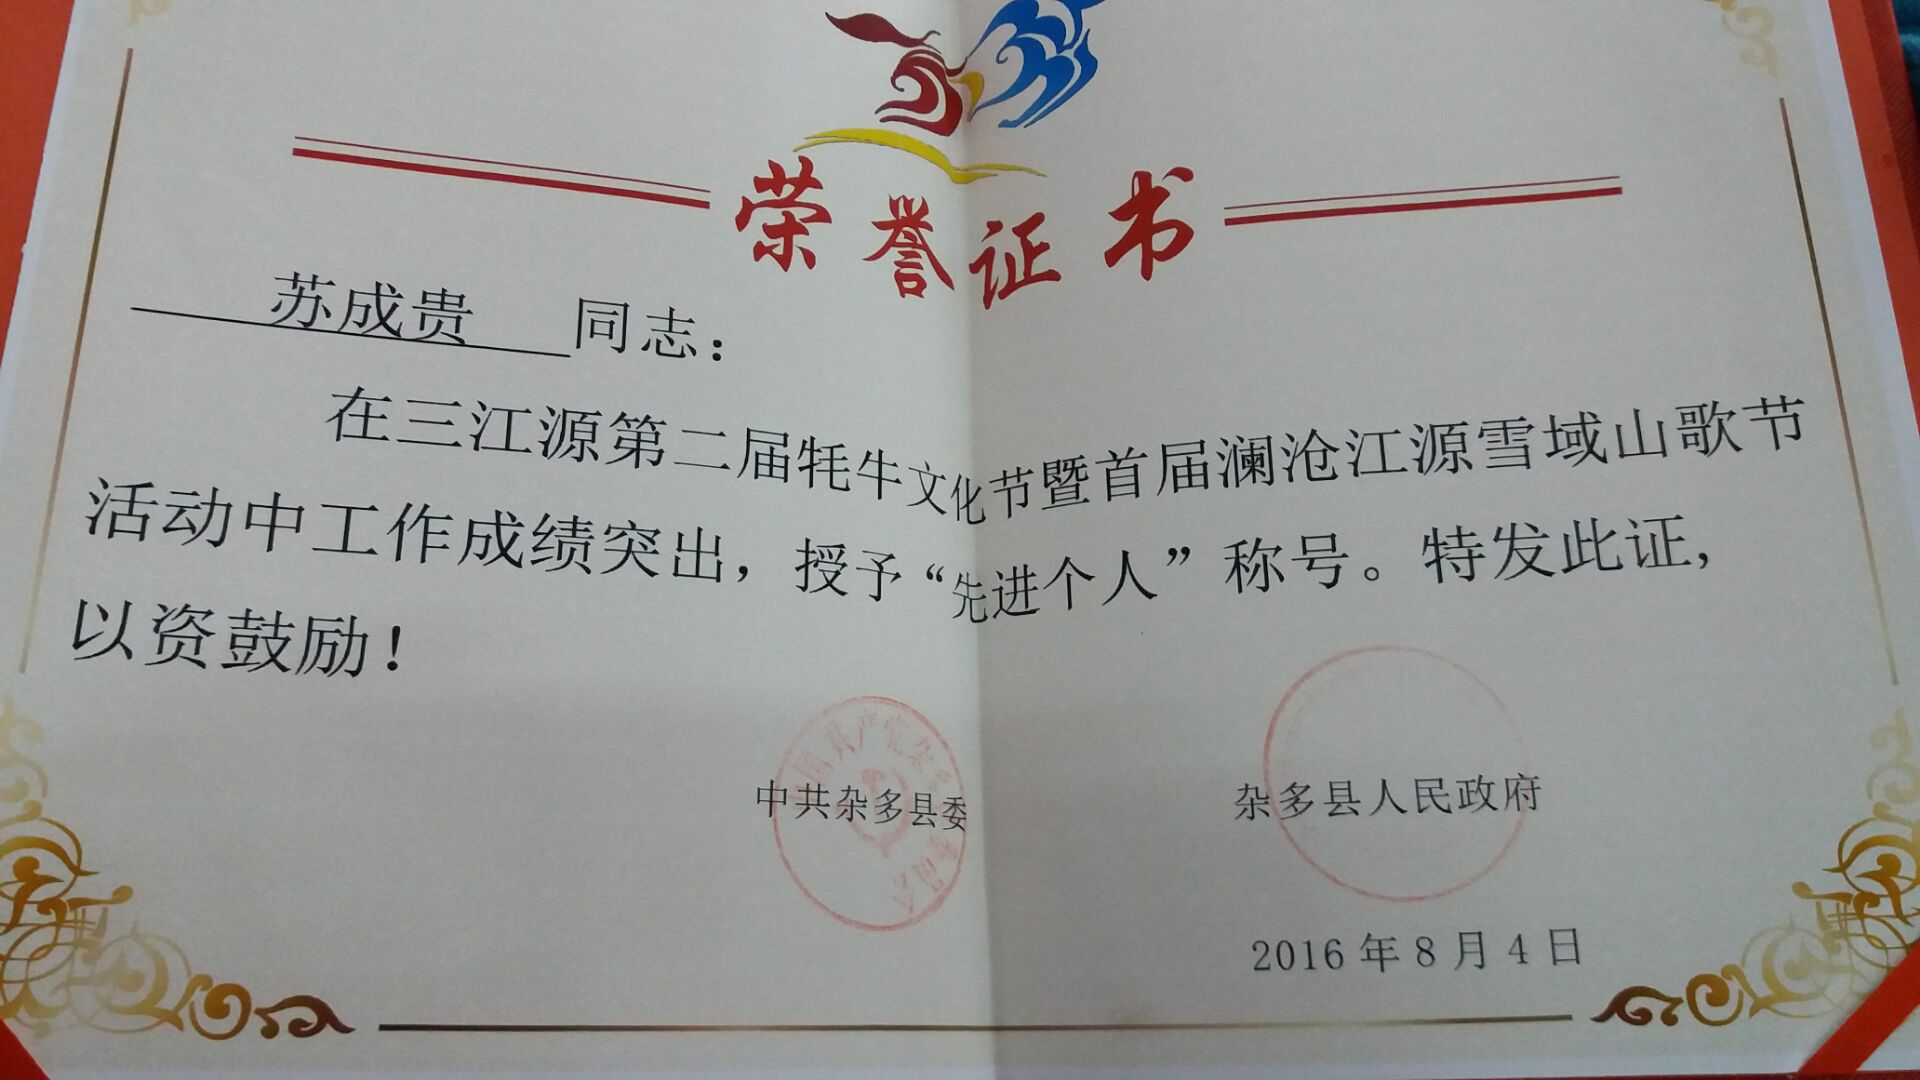 荣誉证书
苏成贵 同志：
在三江源第二届牦牛文化节暨首届澜沧江源雪域山歌节
活动中工作成绩突出，授予“先进个人”称号。特发此证，
以资鼓励！
国共产党杂
委员会
中共杂多县委 杂多县人民政府
2016年8月4日